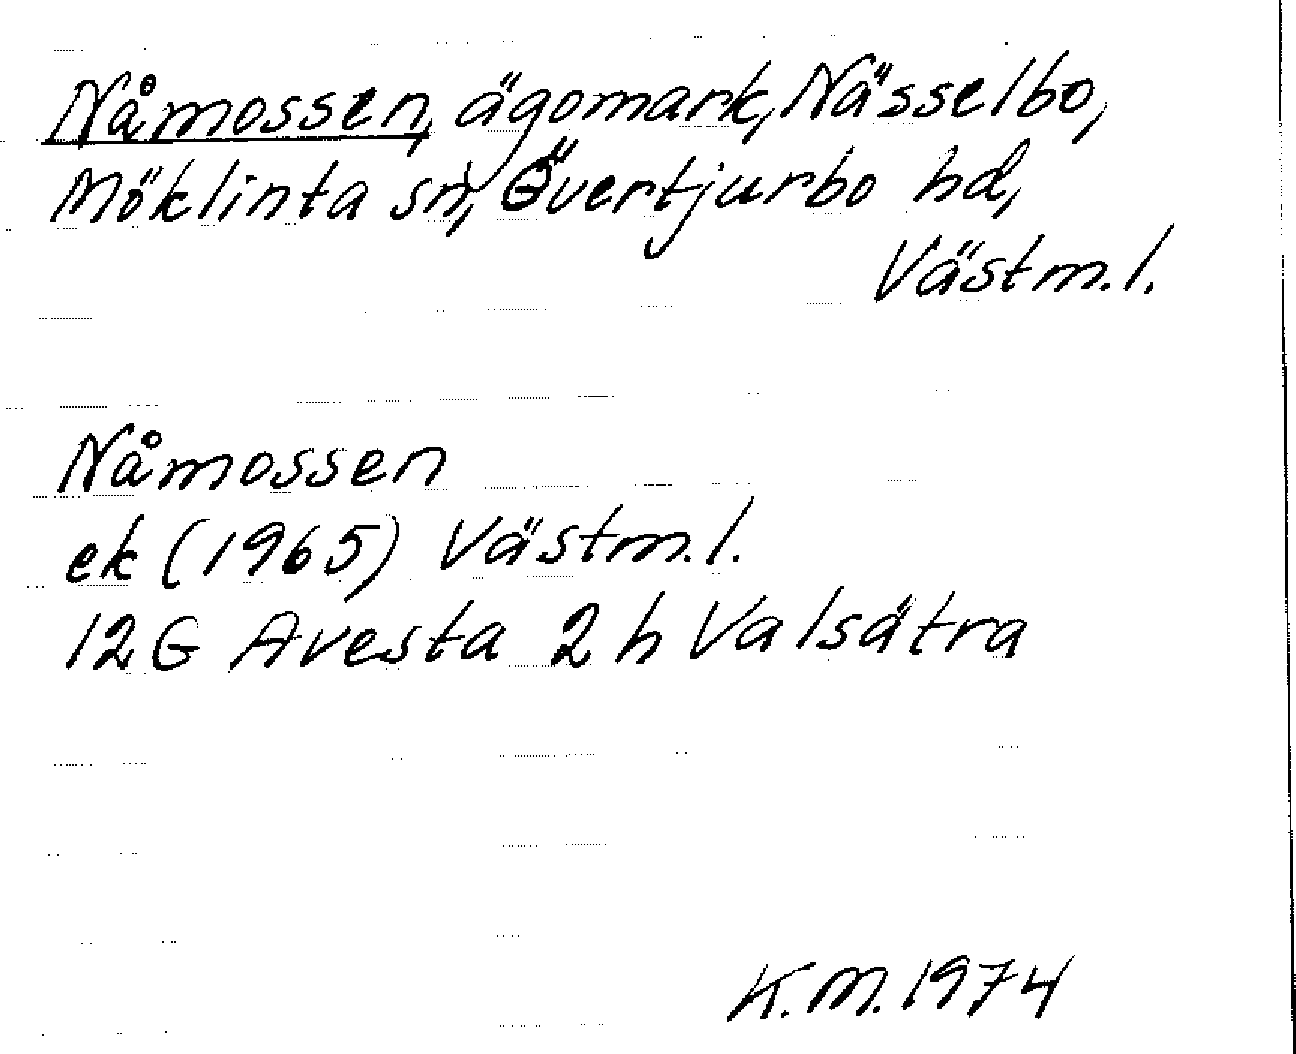 Nåmossen, ägomark, Nässelbo,
Möklinta sn, Övertjurbo hd,
Västm.l.
Nåmossen
ek (1965) Västm.l.
12 G Avesta 2 h Valsätra
K.M. 1974